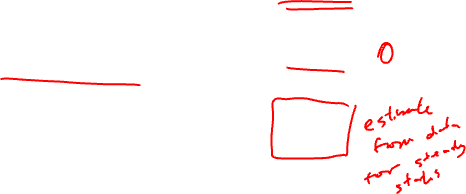 0
estimate
from data
for steady
states